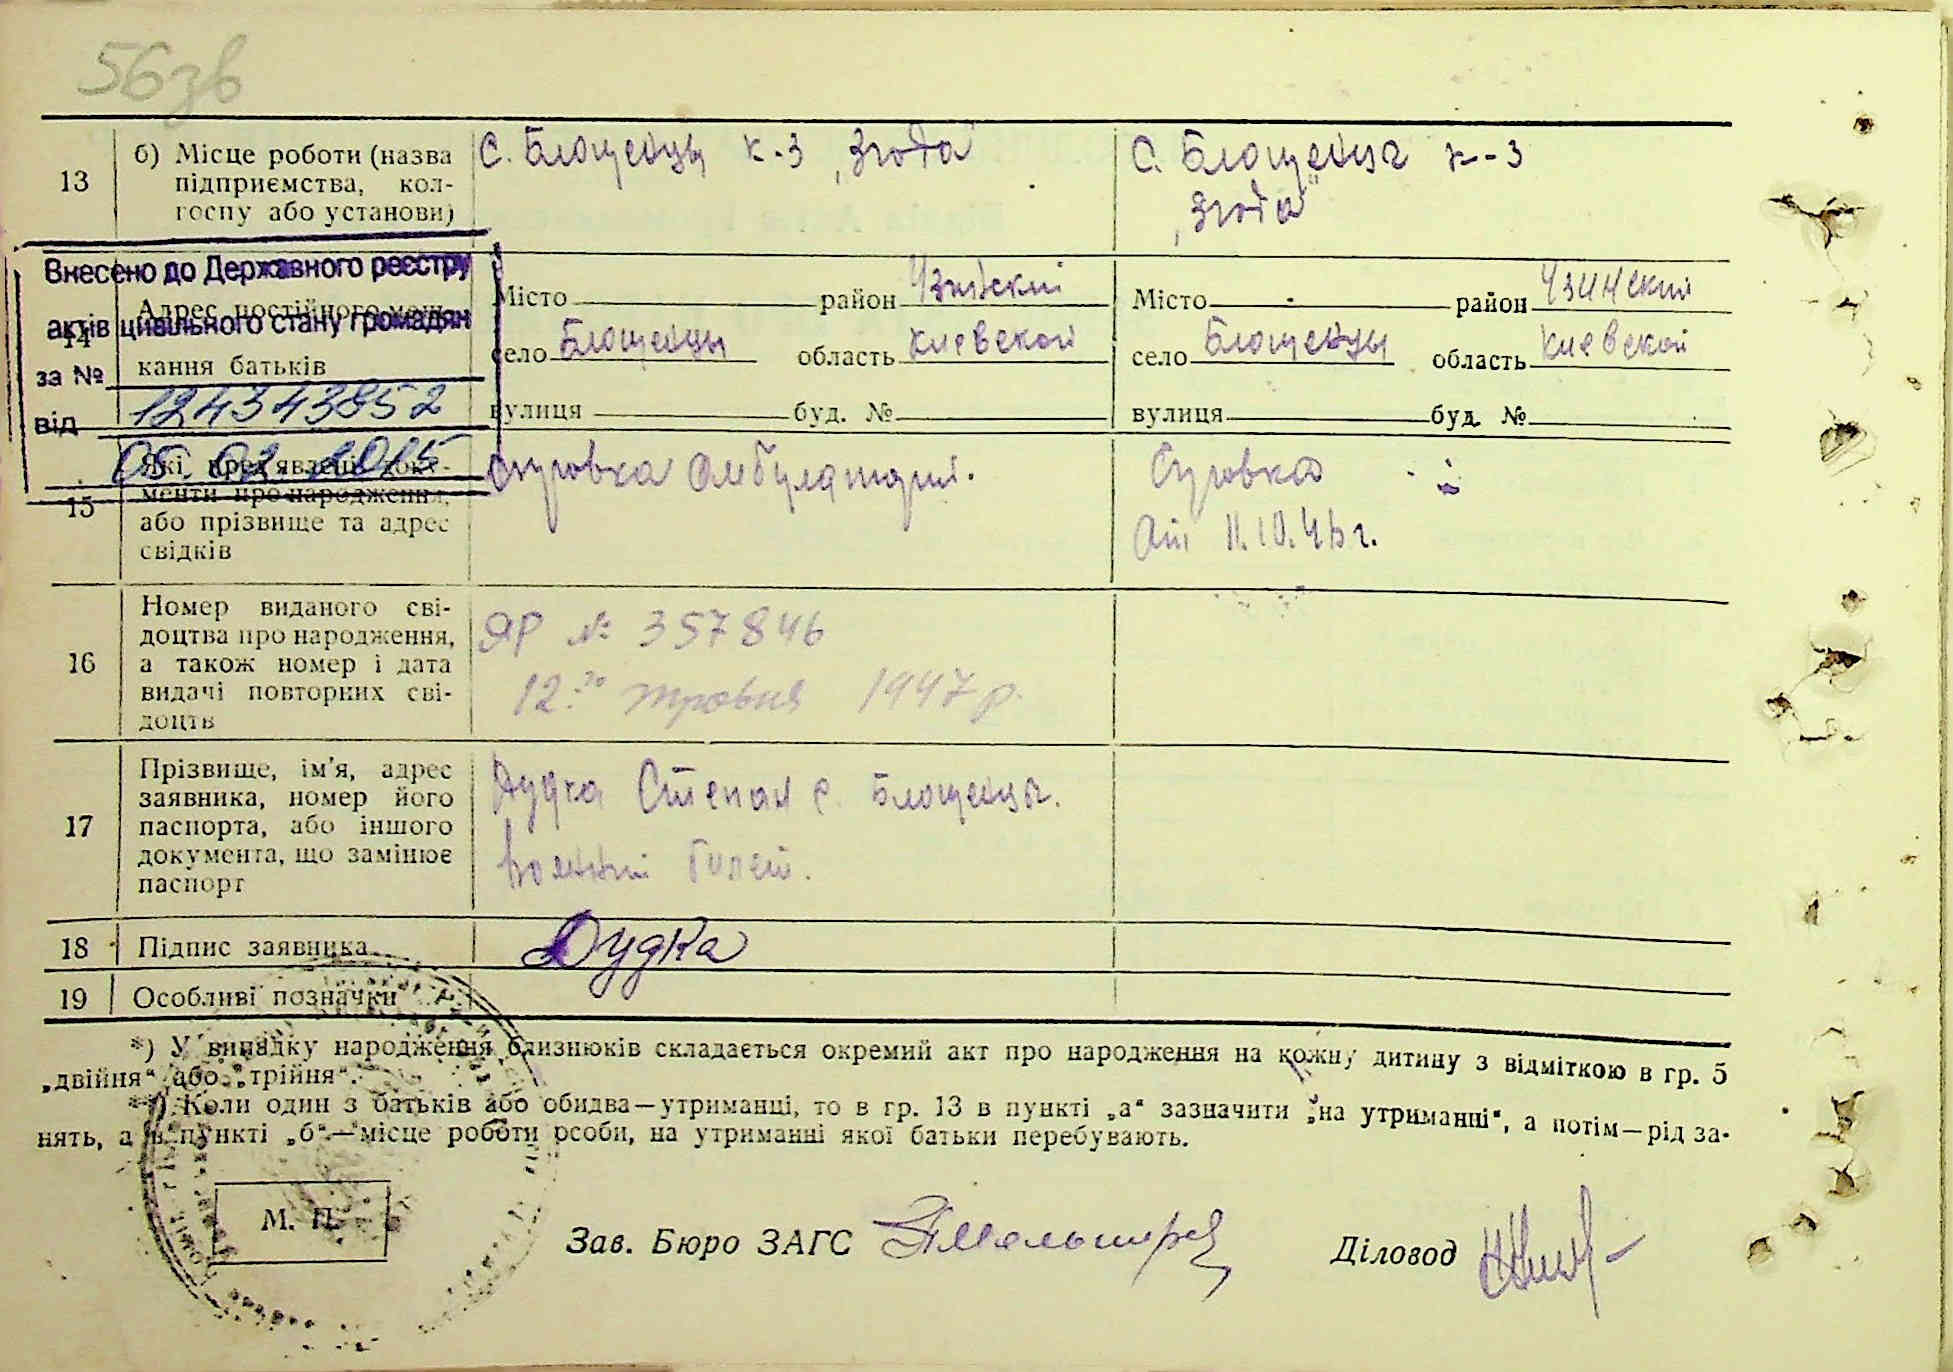 56зв
13
б) Місце роботи (назва
підприємства, кол-
госпу або установи)
с. Блощенцы к-з „Згода"
с. Блощенцы к-з
„Згода"
Внесено до Державного реєстру
актів цивільного стану громадян
за № 124343852
від 05.02.2015
14
Адрес постійного меш-
кання батьків
Місто район Узинский
село Блощенцы область Киевской
вулиця буд. №
Місто район Узинский
село Блощенцы область Киевской
вулиця буд. №
15
Які пред'явлені доку-
менти про народження,
або прізвище та адрес
свідків
Справка Амбулатория.
Справка
от 11.10.46 г.
16
Номер виданого сві-
доцтва про народження,
а також номер і дата
видачі повторних сві-
доцтв
ЯР № 357846
12го травня 1947 р.
17
Прізвище, ім'я, адрес
заявника, номер його
паспорта, або іншого
документа, що замінює
паспорт
Дудка Степан с. Блощенцы.
Военный билет.
18
Підпис заявника
Дудка
19
Особливі позначки
*) У випадку народження близнюків складається окремий акт про народження на кожну дитину з відміткою в гр. 5
„двійня" або „трійня".
**) Коли один з батьків або обидва—утриманці, то в гр. 13 в пункті „а" зазначити „на утриманні", а потім—рід за-
нять, а в пункті „б"—місце роботи особи, на утриманні якої батьки перебувають.
М. П.
Зав. Бюро ЗАГС
Діловод